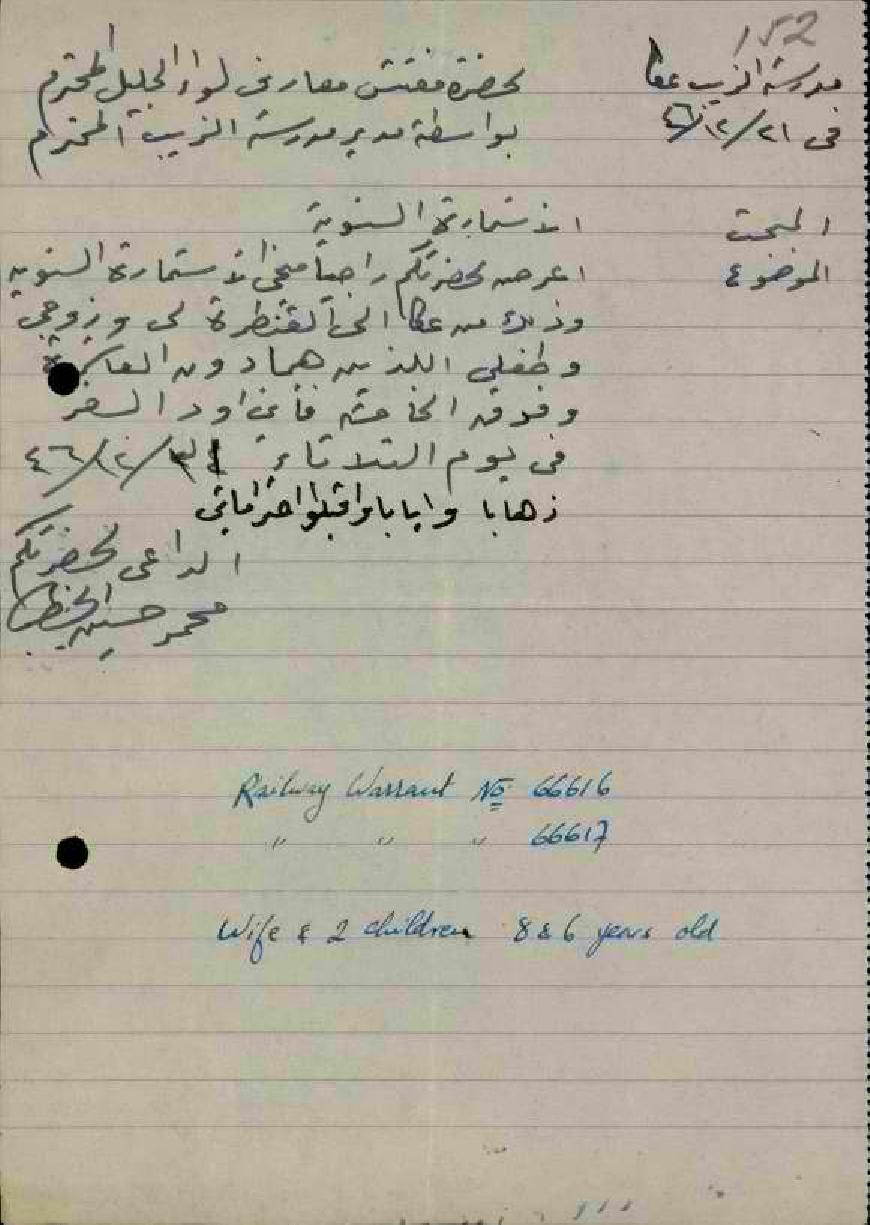 152
مدرسة الزيب عكا
في ٢١/١٢/٤٦
لحضرة مفتش معارف لواء الجليل المحترم
بواسطة مدير مدرسة الزيب المحترم
المبحث الاستمارة السنوية
الموضوع اعرض لحضرتكم راجياً منحي الاستمارة السنوية
وذلك من عكا الى القنطرة لي وزوجي
وطفلي اللذين هما دون العاشرة
وفوق الخامسة فأني اود السفر
في يوم الثلاثاء ٣١/١٢/٤٦
ذهابا وايابا واقبلوا احتراماتي
الداعي لحضرتكم
محمد حسين
Railway Warrant No 66616
" " " 66617
Wife & 2 children 8 & 6 years old